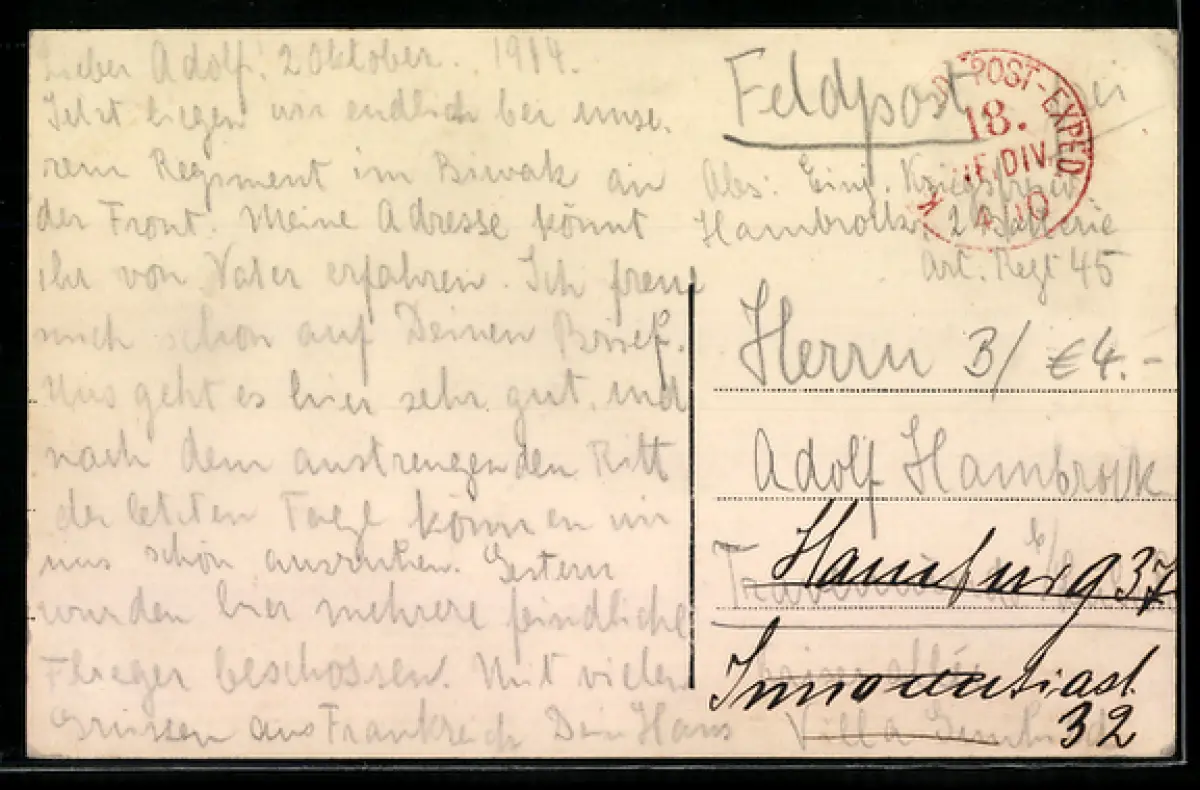 Lieber Adolf! 2 Oktober. 1914.
Jetzt liegen wir endlich bei unse-
rem Regiment im Biwak an
der Front. Meine Adresse könnt
ihr von Vater erfahren. Ich freue
mich schon auf Deinen Brief.
Uns geht es hier sehr gut, und
nach dem anstrengenden Ritt
der letzten Tage können wir
uns schön ausruhen. Gestern
wurden hier mehrere feindliche
Flieger beschossen. Mit vielen
Grüssen aus Frankreich Dein Hans
Feldpost
POST-EXPED.
18.
DIV.
K
Abs: Einj. Kriegsfreiw.
Hambrock, 2 Batterie
Art. Regt 45
Herrn B/ €4.-
Adolf Hambrock
Hamburg 37
Innocentiast.
32
Villa